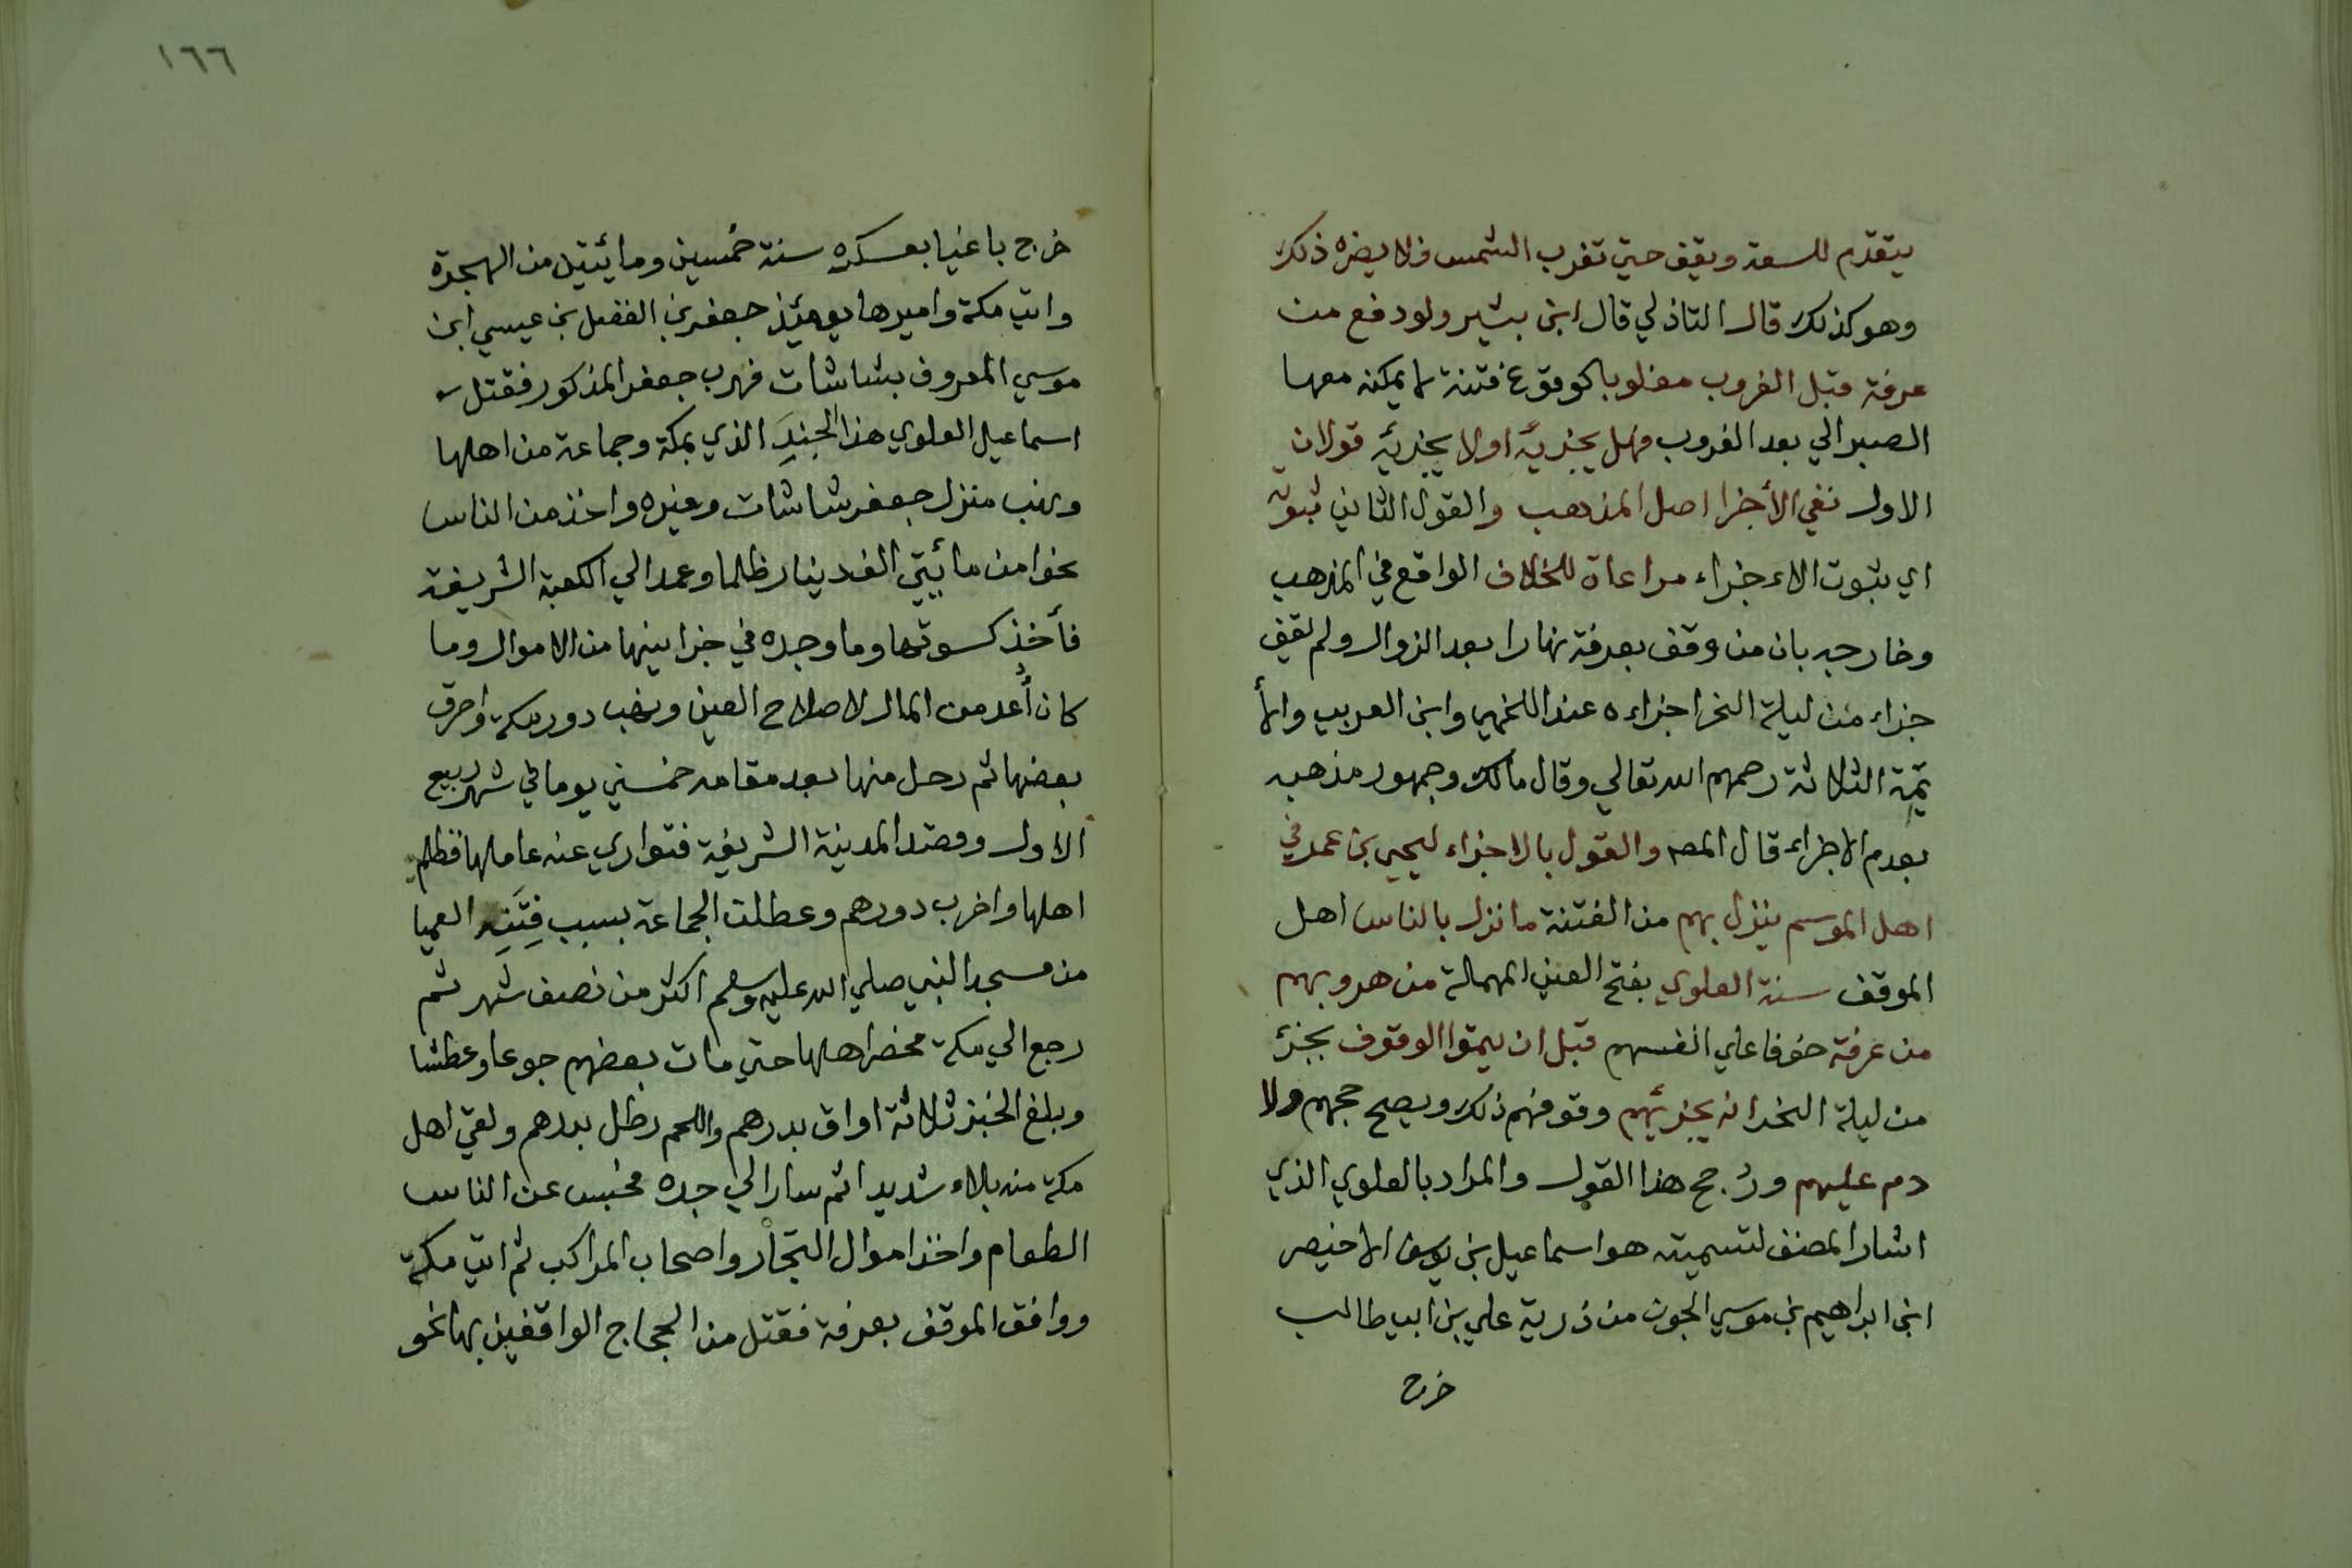 يتقدم للسعة ويقف حتي تغرب الشمس فلا يضره ذلك
وهو كذلك قال التاذلي قال ابن بشير ولو دفع من
عرفة قبل الغروب مغلوبا كوقوع فتنة لا يمكنه معها
الصبر الي بعد الغروب فهل يجزيه او لا يجزيه قولان
الاول نفي الأجزا اصل المذهب والقول الثاني ثبوته
اي ثبوت الاءجزاء مراعاة للخلاف الواقع في المذهب
وخارجه بان من وقف بعرفة نهارا بعد الزوال ولم يقف
جزاء من ليلة النحر اجزاءه عند اللخمي وابن العربي والأ
ئمة الثلاثة رحمهم الله تعالي وقال مالك وجمهور مذهبه
بعدم الاجزاء قال المصه والقول بالاجزاء ليحيي بن عمر في
اهل الموسم ينزل بهم من الفتنة ما نزل بالناس اهل
الموقف سنة العلوي بفتح العين المهملة من هروبهم
من عرفة خوفا علي انفسهم قبل ان يتموا الوقوف بجزئ
من ليلة النحر انه يجزيهم وقوفهم ذلك ويصح حجهم ولا
دم عليهم ورُجح هذا القول والمراد بالعلوي الذي
اشار المصنف لتسميته هو اسماعيل بن يوسف الاخيصر
ابن ابراهيم بن موسي الجون من ذرية علي بن ابي طالب
خرج
١٦٦
خرج باغيا بعسكره سنة خمسين ومائيتين من الهجرة
واتي مكة واميرها يومئذ جعفر بن الفضل بن عيسي ابن
موسي المعروف بشاشات فهرب جعفر المذكور فقتل
اسماعيل العلوي هذا الجندَ الذي بمكة وجماعة من اهلها
ونهب منزل جعفر شاشات وغيره واخذ من الناس
نحوا من مائيتي الف دينار ظلما وعمد الي الكعبة الشريفة
فأخذ كسوتها وما وجده في خزاينها من الاموال وما
كان أُعد من المال لاصلاح العين ونهب دور مكة واحرق
بعضها ثم رحل منها بعد مقامه خمسين يوما في شهر ربيع
الاول وقصد المدينة الشريفة فتواري عنه عاملها فظلم
اهلها واخرب دورهم وعطلت الجماعة بسبب فِتَنِه العميا
من مسجد النبي صلي الله عليه وسلم اكثر من نصف شهر ثم
رجع الي مكة فحصر اهلها حتي مات بعضهم جوعا وعطشا
وبلغ الخبز ثلاثة اواق بدرهم واللحم رطل بدرهم ولقي اهل
مكة منه بلاء شديدا ثم سار الي جده فحبس عن الناس
الطعام واخذ اموال التجار واصحاب المراكب ثم اتي مكة
ووافق الموقف بعرفة فقتل من الحجاج الواقفين بها نحو